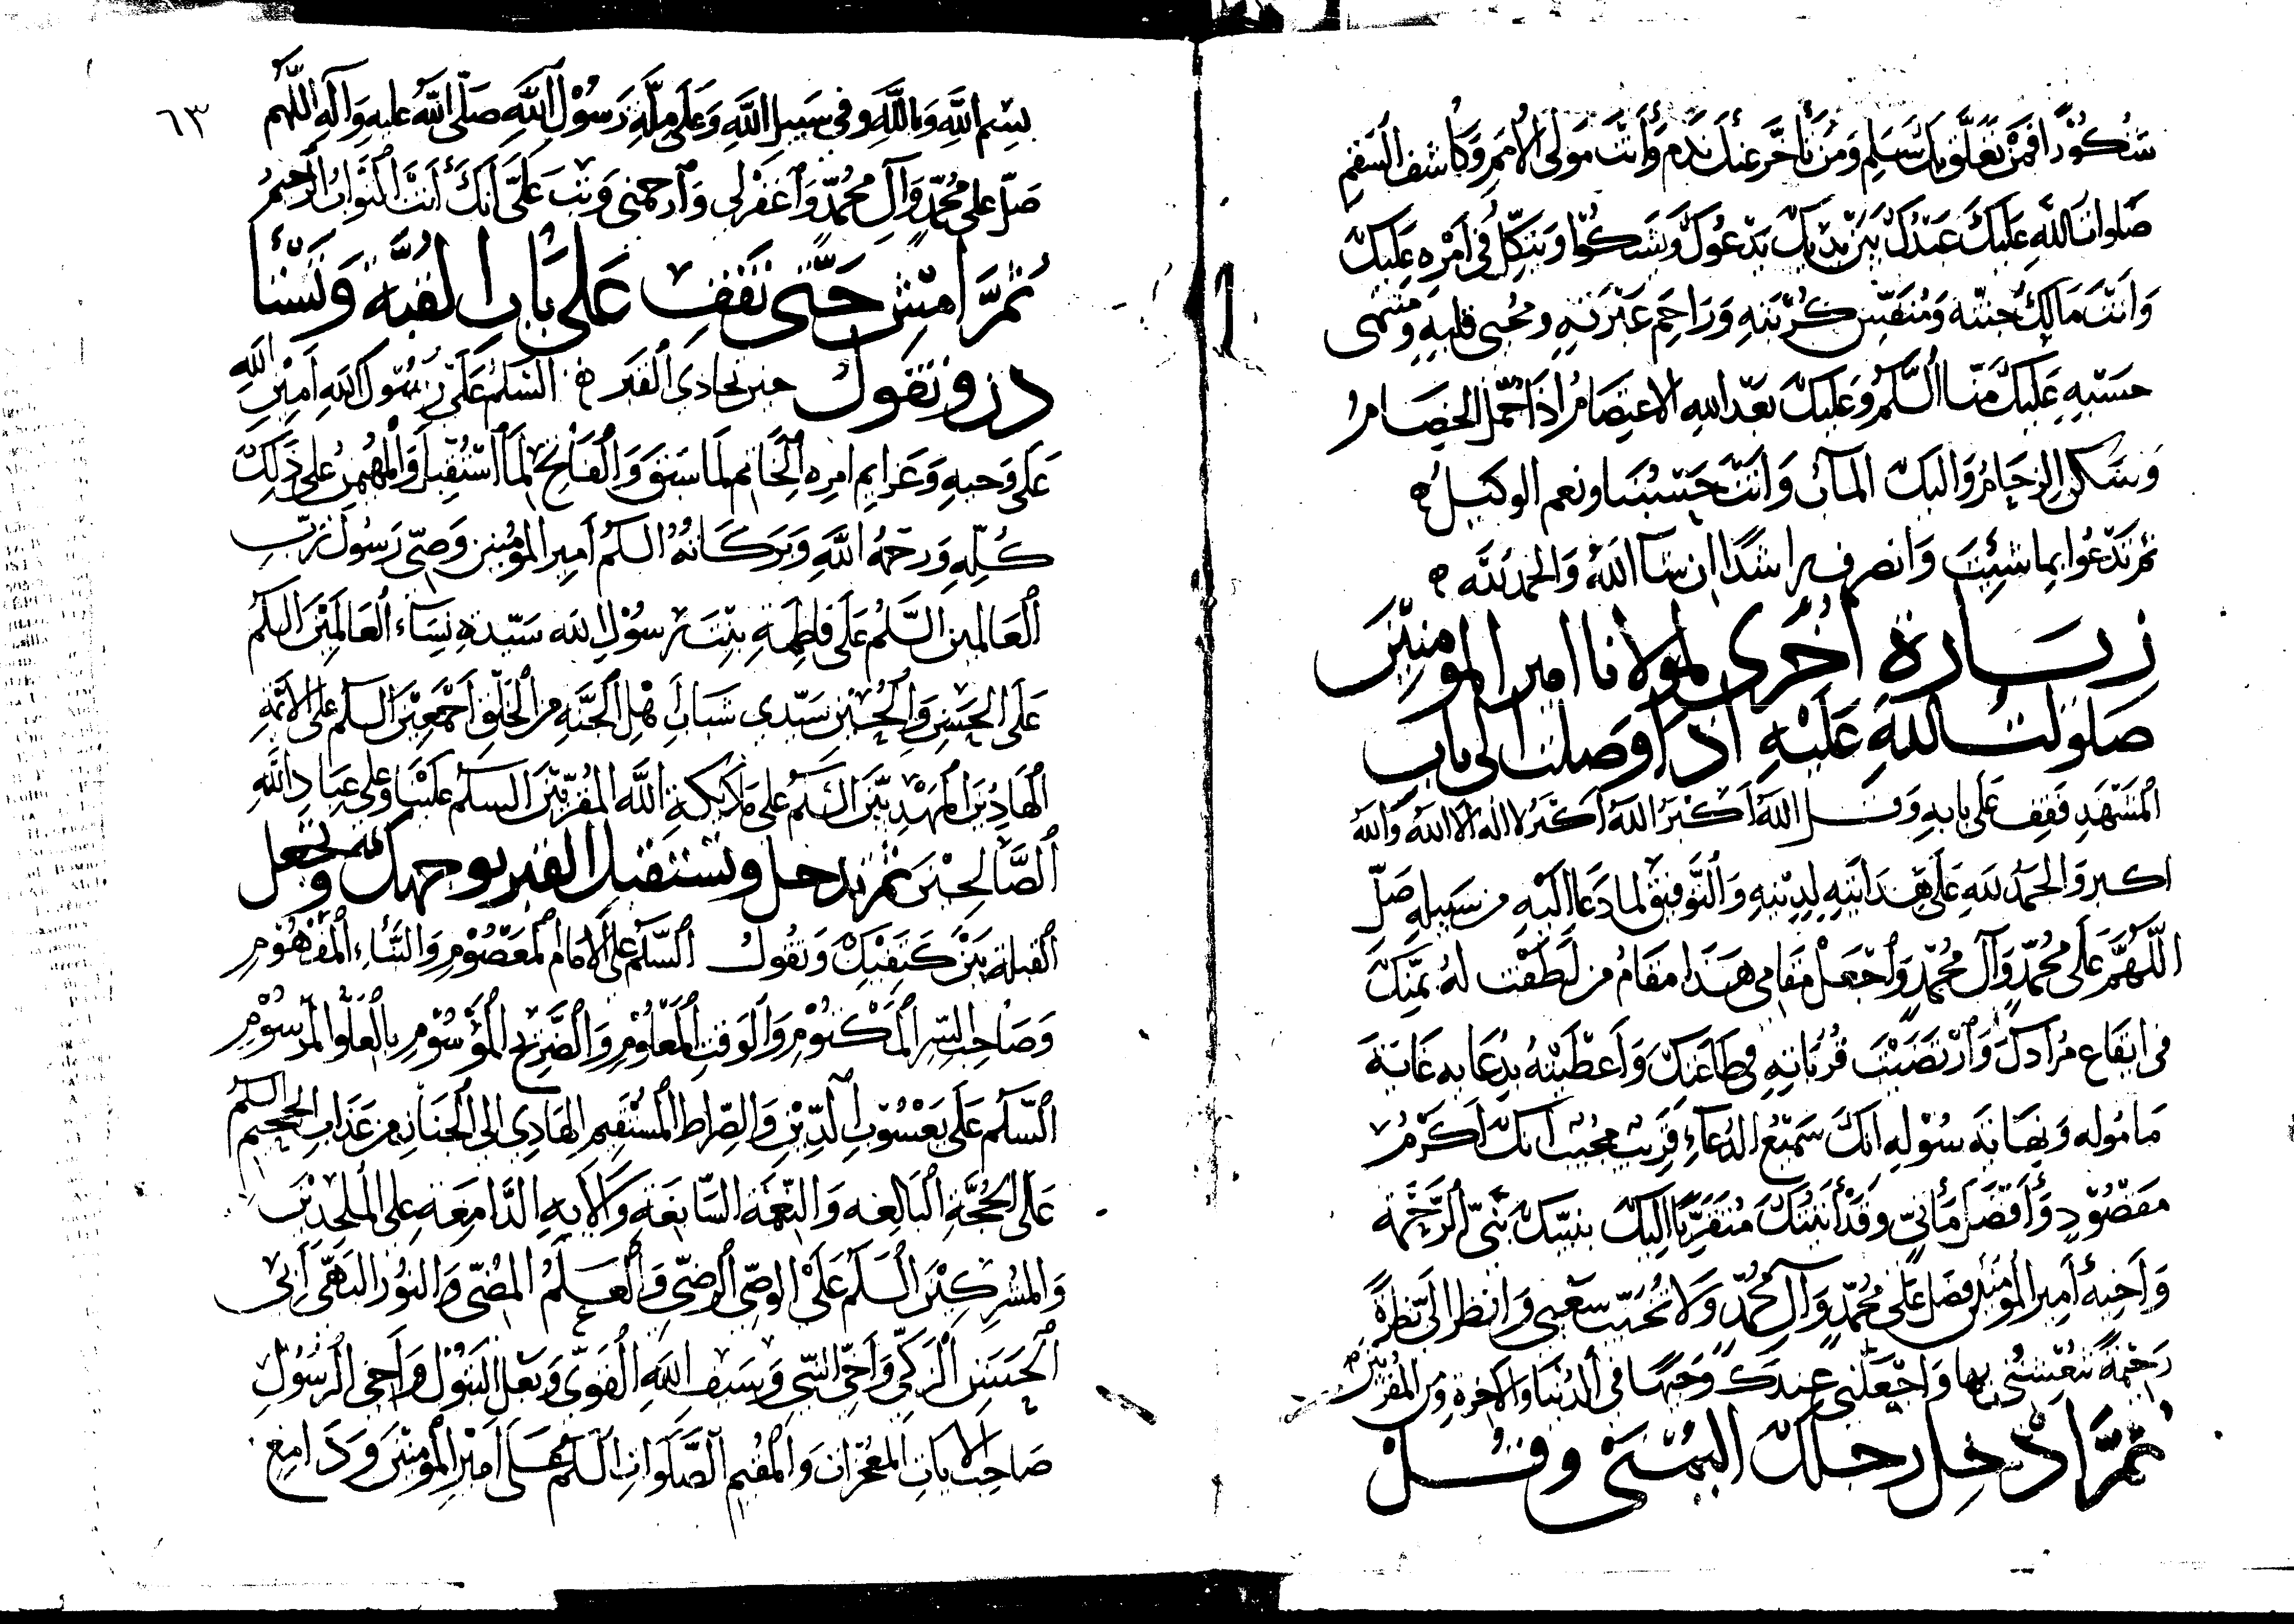 شكورا فمن تعلق بك سلم ومن تأخر عنك ندم وأنت مولى الأمم وكاشف السقم
صلوات الله عليك عبدك بين يديك يدعوك ويشكوا ويتكل في أمره عليك
وأنت مالك جنته ومنفس كربته وراحم عبرته ومحيي قلبه
عليك منا السلم وعليك بعد الله الاعتصام اذا الخصام
وسكن الزحام واليك المآب وأنت حسبنا ونعم الوكيل
ثم تدعوا بما شئت وانصرف راشدا ان شا الله والحمد لله
زيارة أخرى لمولانا امير المومنين
صلوات الله عليه اذا وصلت الى باب
المشهد فقف على بابه وقل الله أكبر الله أكبر لا اله الا الله والله
اكبر والحمد لله على هدايته لدينه والتوفيق لما دعا اليه من سبيله صل
اللهم على محمد وآل محمد واجعل مقامي هذا مقام من لطفت له بمنك
في ايقاع مرادك وارتضيت قرباته في طاعتك وأعطيته بدعايه غاية
مأموله ونهاية سوله انك سميع الدعاء قريب مجيب انك أكرم
مقصود وأفضل مأتي وقد أتيتك متقربا اليك بنبيك نبي الرحمة
وأخيه أمير المؤمنين فصل على محمد وآل محمد ولا تخيب سعيي وانظر الي نظرة
رحيمة تنعشني بها واجعلني عندك وجيها في الدنيا والآخرة ومن المقربين
ثم ادخل رجلك اليمنى وقل
٦٣
بسم الله وبالله وفي سبيل الله وعلى ملة رسول الله صلى الله عليه وآله اللهم
صل على محمد وآل محمد واغفر لي وارحمني وتب علي انك أنت التواب الرحيم
ثم امش حتى تقف على باب القبة
وتقول حين تحاذي القبر السلم على رسول الله امين الله
على وحيه وعزايم امره الخاتم لما سبق والفاتح لما استقبل والمهيمن على ذلك
كله ورحمة الله وبركاته السلم أمير المؤمنين وصي رسول رب
العالمين السلم على فاطمة بنت رسول الله سيدة نساء العالمين السلم
على الحسن والحسين سيدي شباب أهل الجنة من الخلق أجمعين السلم على الائمة
الهادين المهديين السلم على ملائكة الله المقربين السلم علينا وعلى عباد الله
الصالحين ثم تدخل وتستقبل القبر بوجهك وتجعل
القبلة بين كتفيك وتقول السلم على الامام المعصوم والثناء المفهوم
وصاحب السر المكتوم والوقت المعلوم والضريح الموسوم بالعلو المرسوم
السلم على يعسوب الدين والصراط المستقيم الهادي الى الجنان من عذاب الجحيم السلم
على الحجة البالغه والنعمة السابغة والآيه الدامغة على الملحدين
والمشركين السلم على الوصي الرضي والعلم المضي والنور البهي أبي
الحسنين الزكي وأخي النبي وسيف الله القوي وبعل البتول وأخي الرسول
صاحب الآيات المعجزات والمقيم الصلوات السلم على أمير المؤمنين ودامغ